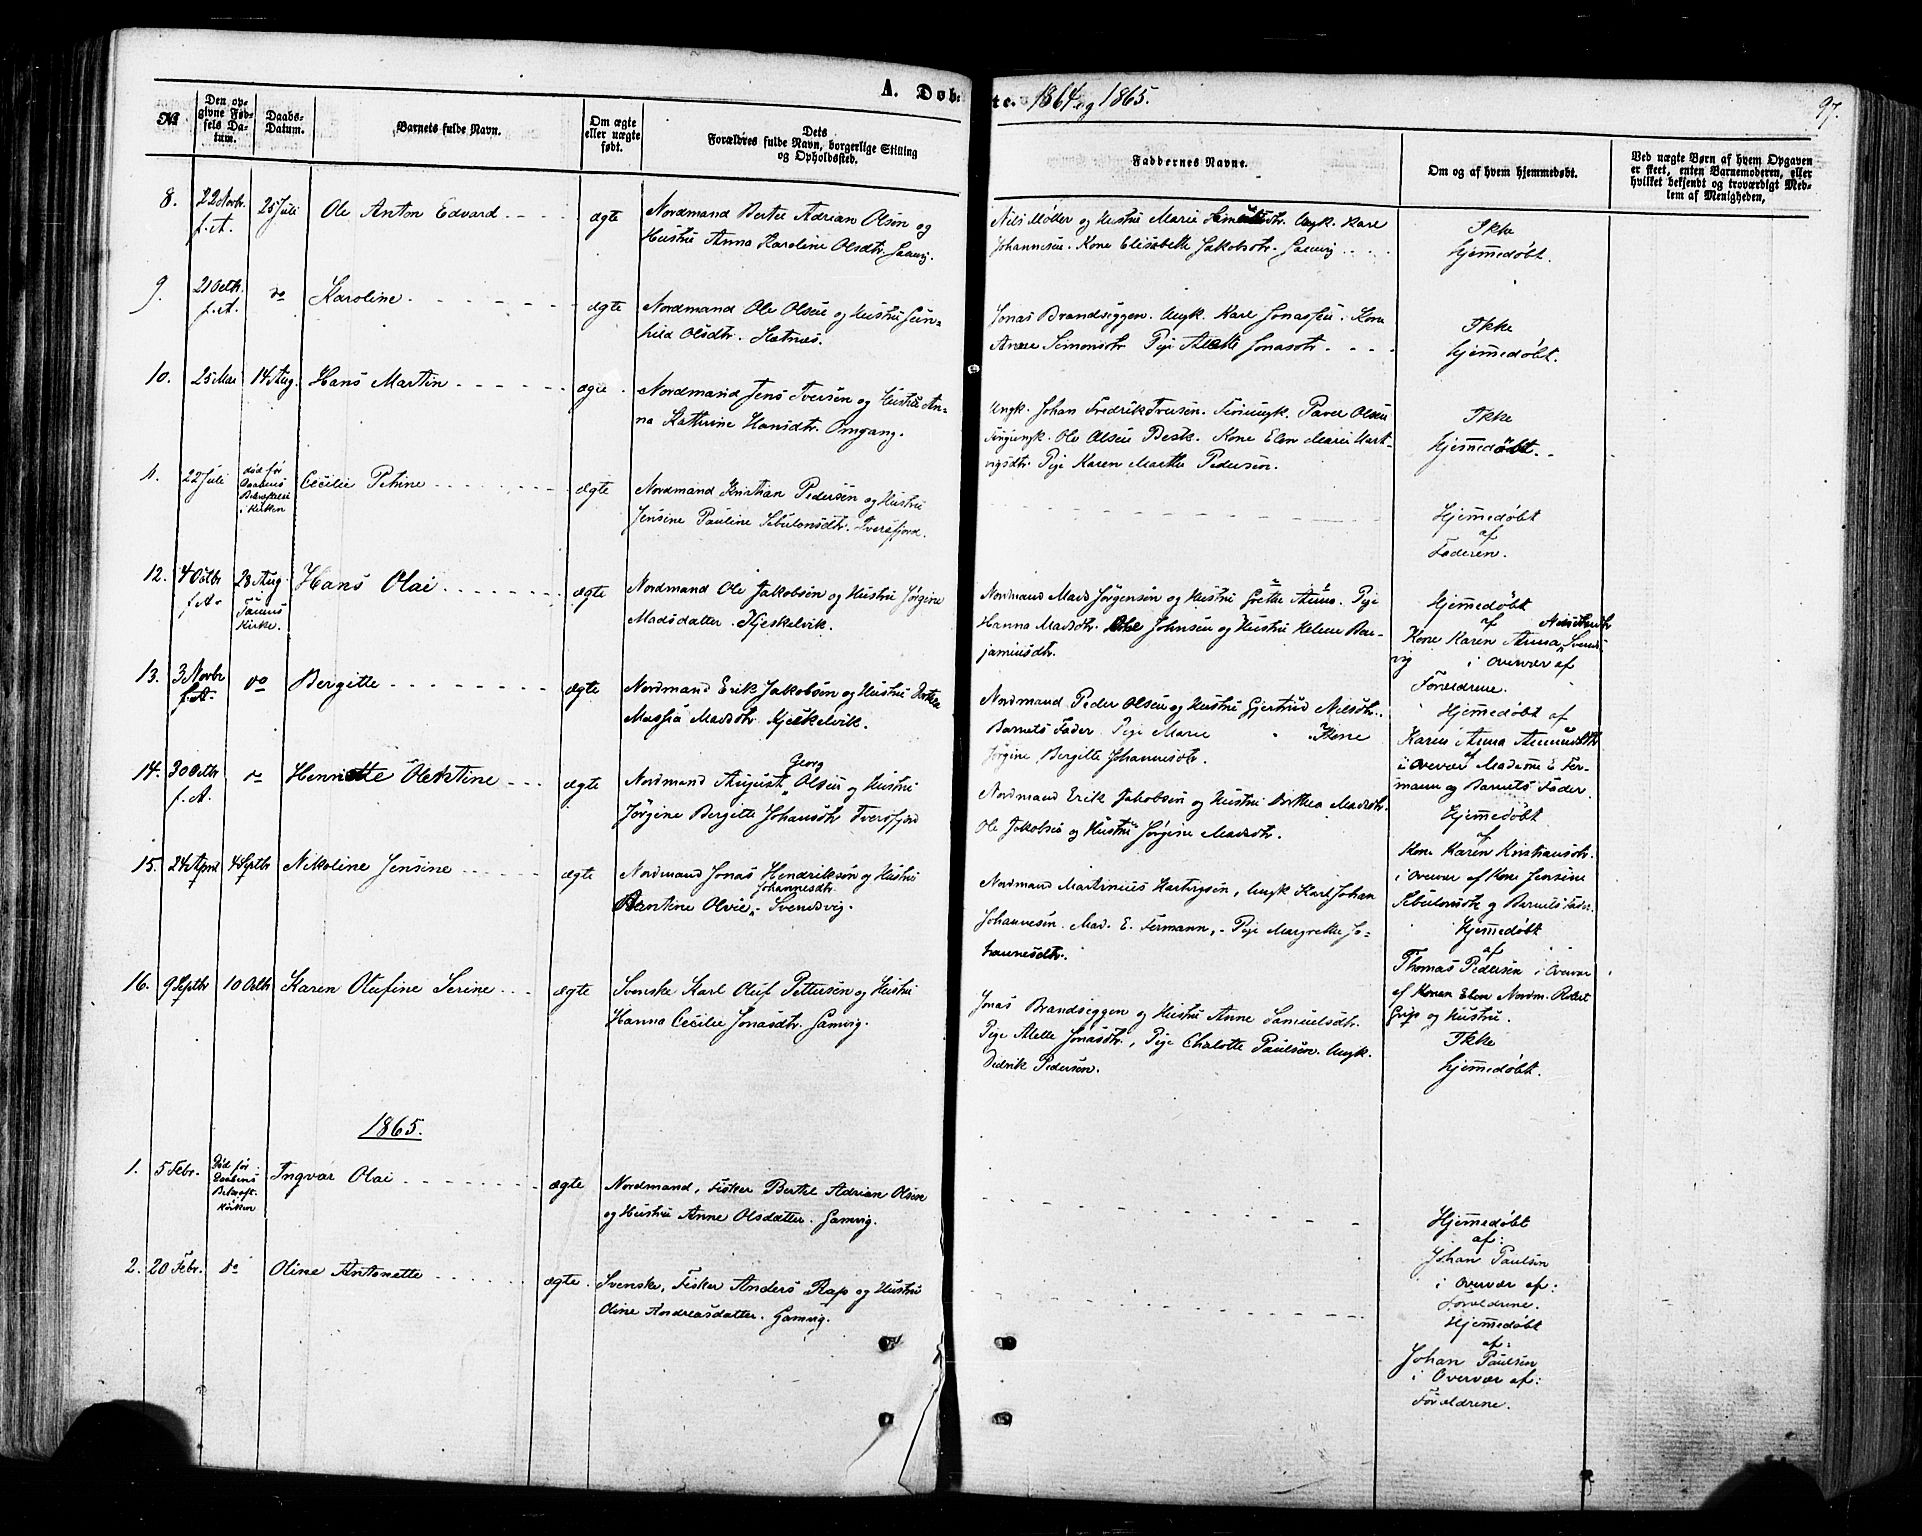 A. Døbte. 1864 og 1865.
97.
№
Den opgivne Fødsels Datum.
Daabs-Datum.
Barnets fulde Navn.
Om ægte eller uægte født.
Dets Forældres fulde Navn, borgerlige Stilling og Opholdssted.
Faddernes Navne.
Om og af hvem hjemmedøbt.
Ved uægte Børn af hvem Opgaven er skeet, enten Barnemoderen, eller hvilket bekjendt og troværdigt Medlem af Menigheden.
8. 22 Novbr f. A. 25 Juli Ole Anton Edvard ægte
Nordmand Bertel Adrian Olsen og
Hustru Anna Karoline Olsdtr. Gamvig.
Nils Møller og Hustru Marie Samuelsdtr. Ungk. Karl
Johannesen. Kone Elisabeth Jakobsdtr. Gamvig
Ikke
hjemmedøbt.
9. 21 Octb. f. A. do Karoline ægte
Nordmand Ole Olsen og Hustru Gun-
hild Olsdtr.
Jonas Brandseggen. Ungk. Karl Jonassen. Kone
Anne Simonsdtr Pige Alette Jonasdtr
Ikke
hjemmedøbt.
10. 25 Mai 14 Aug. Hans Martin ægte
Nordmand Jens Iversen og Hustru An-
na Kathrine Hansdtr. Omgang.
Ungk. Johan Fredrik Iversen. Paver Olsen
Ole Olsen Besk. Kone Elen Marie Hart-
vigsdtr. Pige Karen Marthe Pedersen.
Ikke
hjemmedøbt.
11. 22 Juli død før Daabens Bekræftelse i Kirken Cecilie Petrine ægte
Nordmand Kristian Pedersen og Hustru
Jensine Pauline Sebulonsdtr. Tversfjord.
Hjemmedøbt
af
Faderen.
12. 4 Octbr f. A. 28 Aug. i Tanens Kirke. Hans Olai ægte
Nordmand Ole Jakobsen og Hustru Jørgine
Madsdatter. Kjeskelvik.
Nordmand Mads Jørgensen og Hustru Grethe Anna. Pige
Hanna Madsdtr. Johnsen og Hustru Helene Ben-
jaminsdtr.
Hjemmedøbt
af
Kone Karen Anna Svends-
vig i Overvær af
Forældrene.
13. 3 Novbr f. A. do Bergitte ægte
Nordmand Erik Jakobsen og Hustru Dorthea
Massia Madsdtr. Kjeskelvik.
Nordmand Peder Olsen og Hustru Gjertrud Nilsdtr.
Barnets Fader. Pige Marie " Kone
Jørgine Bergitte Johannesdtr.
Hjemmedøbt af
Karen Anna Amundsdtr
i Overvær af Madame E. Fer-
mann og Barnets Fader.
14. 30 Octbr f. A. do Henriette Olentine ægte
Georg
Nordmand August Olsen og Hustru
Jørgine Bergitte Johansdtr Tversfjord
Nordmand Erik Jakobsen og Hustru Dorthea Madsdtr.
Ole Jakobsen og Hustru Jørgine Madsdtr.
Hjemmedøbt
af
Kone Karen Kristiansdtr.
i Overvær af Kone Jensine
Sebulonsdtr og Barnets Fader.
15. 24 April 4 Septbr Nikoline Jensine ægte
Nordmand Jonas Hendriksen og Hustru
Johannesdtr.
Bentine Olvie Svendsvig.
Nordmand Martinius Hartvigsen, Ungk Karl Johan
Johannesen. Mad. E. Fermann, Pige Margrethe Jo-
hannesdtr.
Hjemmedøbt
af
Thomas Pedersen i Overvær
af Konen Elen Nordm. Robert
Grip og Hustru.
16. 9 Septbr 10 Octbr Karen Olufine Serine ægte
Svenske Karl Oluf Pettersen og Hustru
Hanna Cecilie Jonasdtr. Gamvig.
Jonas Brandseggen og Hustru Anne Samuelsdtr.
Pige Alette Jonasdtr, Pige Charlotte Paulsen. Ungk.
Didrik Pedersen.
Ikke
hjemmedøbt.
1865.
1. 5 Febr. Død før Daabens Bekræft. i Kirken Ingvar Olai ægte
Nordmand, Fisker Bertel Adrian Olsen
og Hustru Anne Olsdatter. Gamvig.
Hjemmedøbt
af:
Johan Paulsen
i Overvær af:
Forældrene.
2. 20 Febr. do Oline Antonette ægte
Svenske, Fisker Anders Rap og Hustru
Oline Andreasdatter. Gamvig.
Hjemmedøbt
af:
Johan Paulsen
i Overvær af:
Forældrene.